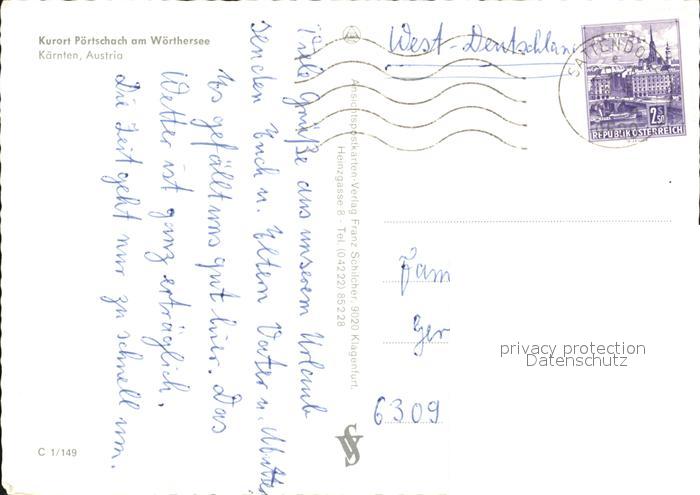 Kurort Pörtschach am Wörthersee
Kärnten, Austria
Viele Grüße aus unserem Urlaub
senden Euch u. Eltern Vater u. Mutter
Es gefällt uns gut hier. Das
Wetter ist ganz erträglich.
Die Zeit geht nur zu schnell um.
C 1/149
Ansichtspostkarten-Verlag Franz Schilcher, 9020 Klagenfurt,
Heinzgasse 8 - Tel. (04222) 85228
West-Deutschlan
SATTENDO
2S50
REPUBLIK ÖSTERREICH
Fam
Ger
6309
privacy protection
Datenschutz